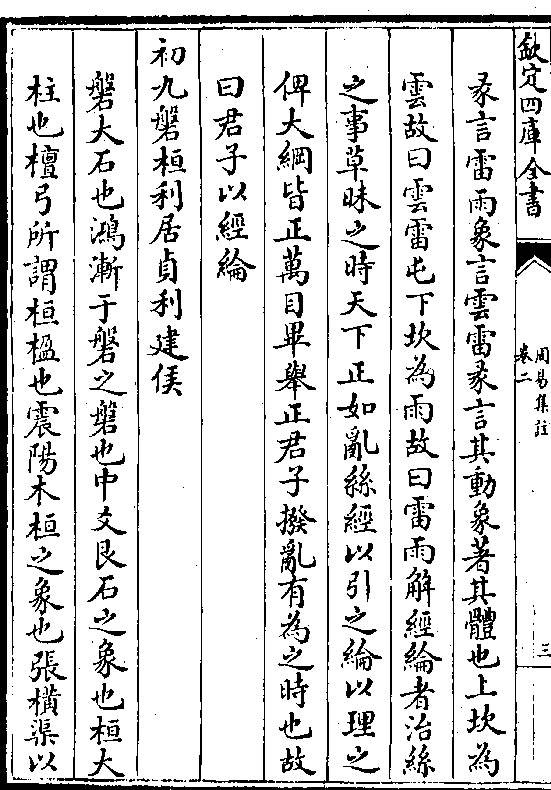 欽定四庫全書
周易集註
卷二
三
彖言雷雨象言雲雷彖言其動象著其體也上坎為
雲故曰雲雷屯下坎為雨故曰雷雨解經綸者治絲
之事草昧之時天下正如亂絲經以引之綸以理之
俾大綱皆正萬目畢舉正君子撥亂有為之時也故
曰君子以經綸
初九磐桓利居貞利建侯
磐大石也鴻漸于磐之磐也中爻艮石之象也桓大
柱也檀弓所謂桓楹也震陽木桓之象也張橫渠以